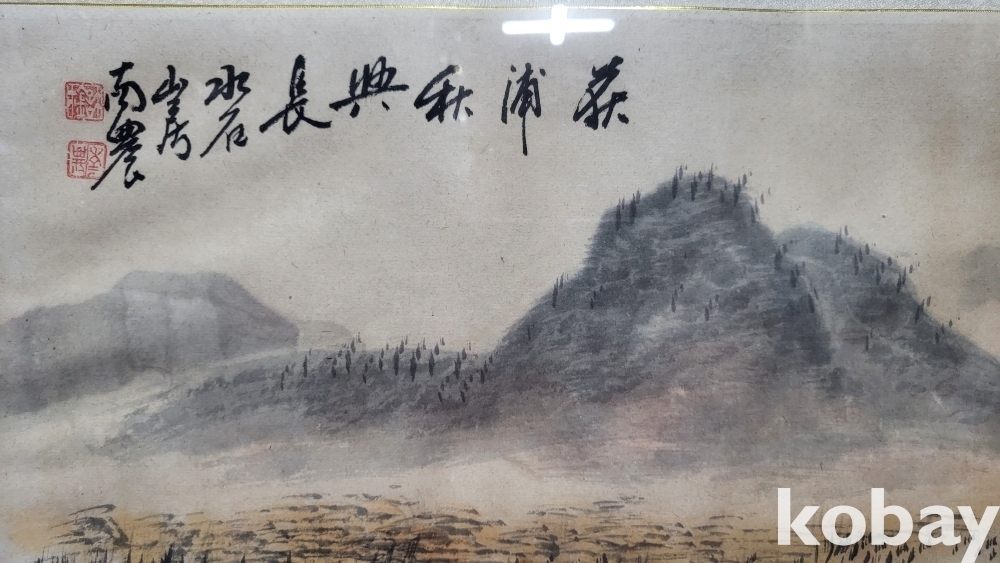 荻浦秋興長
水石
山居
南農
kobay